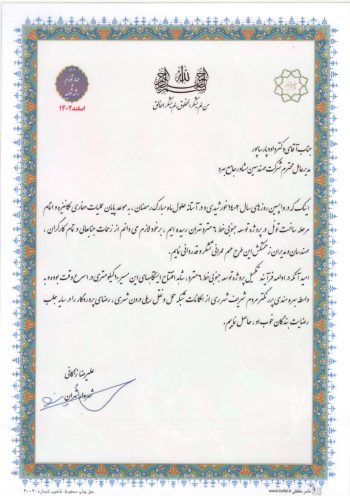 مهار تورم
رشد تولید
اسفند ۱۴۰۲
بسم الله الرحمن الرحیم
من لم یشکر المخلوق، لم یشکر الخالق
جناب آقای دکتر داود پارساپور
مدیرعامل محترم شرکت مهندسین مشاور جامع
اینک که در واپسین روزهای سال ۱۴۰۲ خورشیدی و در آستانه حلول ماه مبارک رمضان، به موعد پایان عملیات حفاری مکانیزه و اتمام
مرحله ساخت تونل در پروژه توسعه جنوبی خط ۶ مترو تهران رسیده ایم، بر خود لازم می دانم از زحمات جنابعالی و تمام کارگران،
مهندسان و مدیران زحمتکش این طرح مهم عمرانی تشکر و قدردانی نمایم.
امید آنکه در ادامه فرآیند تکمیل پروژه توسعه جنوبی خط ۶ مترو، شاهد افتتاح ایستگاههای این مسیر کیلومتری در اسرع وقت بوده و به
واسطه بهره مندی بهتر مردم شریف شهر ری از امکانات شبکه حمل و نقل ریلی درون شهری، رضای پروردگار را در سایه جلب
رضایت بندگان خوب او، حاصل نمایم.
علیرضا زاکانی
شهردار تهران
حق چاپ محفوظ. تذهیب شماره: ۲۰۰۹
www.hefel.ir